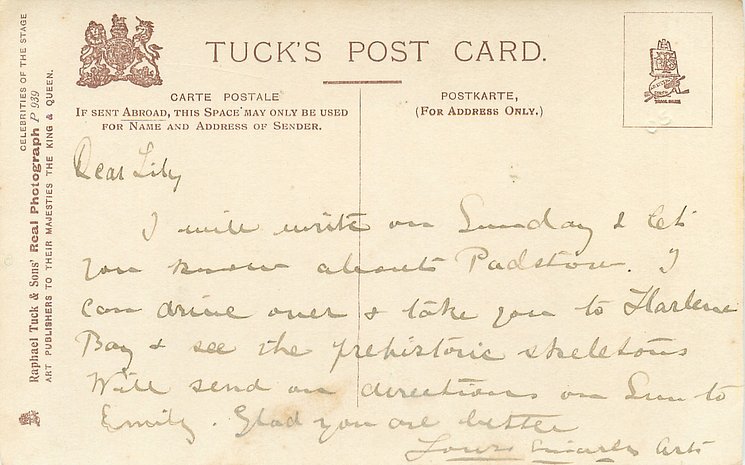 TUCK'S POST CARD.
CARTE POSTALE
IF SENT ABROAD, THIS SPACE MAY ONLY BE USED
FOR NAME AND ADDRESS OF SENDER.
POSTKARTE,
(FOR ADDRESS ONLY.)
CELEBRITIES OF THE STAGE
Raphael Tuck & Sons' Real Photograph P 939
ART PUBLISHERS TO THEIR MAJESTIES THE KING & QUEEN.
Dear Lily
I will write on Sunday & let
you know about Padstow. I
can drive over & take you to Harlene
Bay & see the prehistoric skeletons
Will send on directions on Sun to
Emily. Glad you are better
Yours sincerely